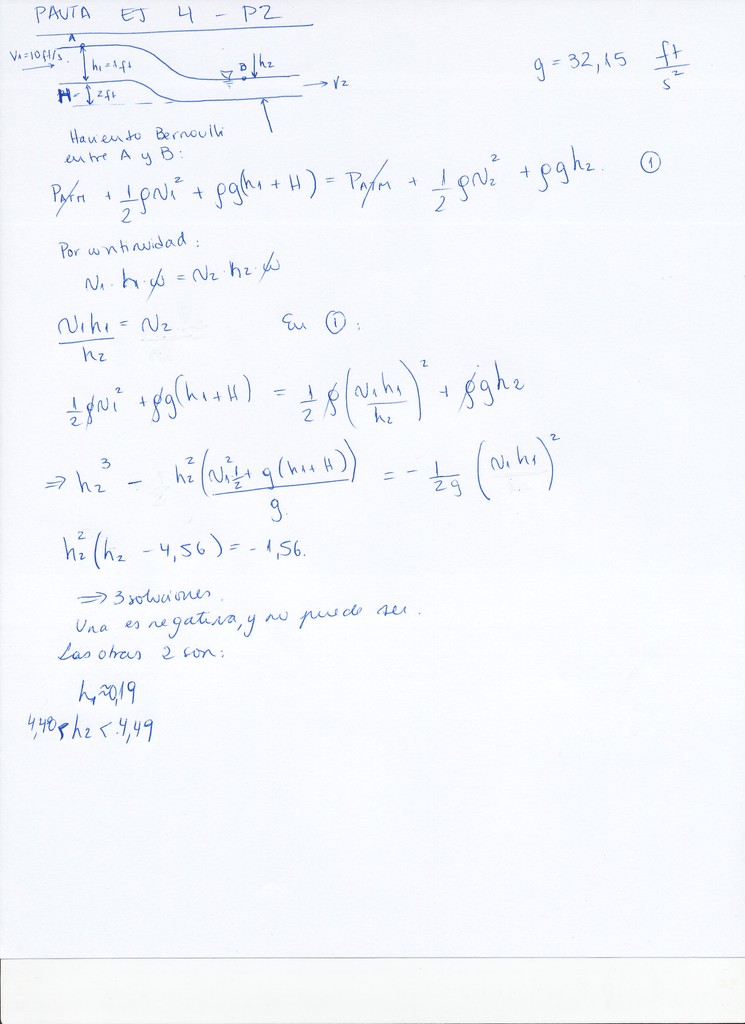 PAUTA EJ 4 - P2
A
V1=10ft/s.
h1=1ft
B
h2
H
2ft
V2
g = 32,15 ft/s²
Haciendo Bernoulli
entre A y B:
PATM + 1/2 ρv1² + ρg(h1 + H) = PATM + 1/2 ρv2² + ρgh2. ①
Por continuidad:
v1 · h1 · ω = v2 · h2 · ω
v1h1/h2 = v2 En ①:
1/2 ρv1² + ρg(h1+H) = 1/2 ρ(v1h1/h2)² + ρgh2
⇒ h2³ - h2²(v1² 1/2 + g(h1+H))/g = - 1/2g (v1h1)²
h2²(h2 - 4,56) = -1,56.
⇒ 3 soluciones.
Una es negativa, y no puede ser.
Las otras 2 son:
≈0,19
< h2 < 4,49